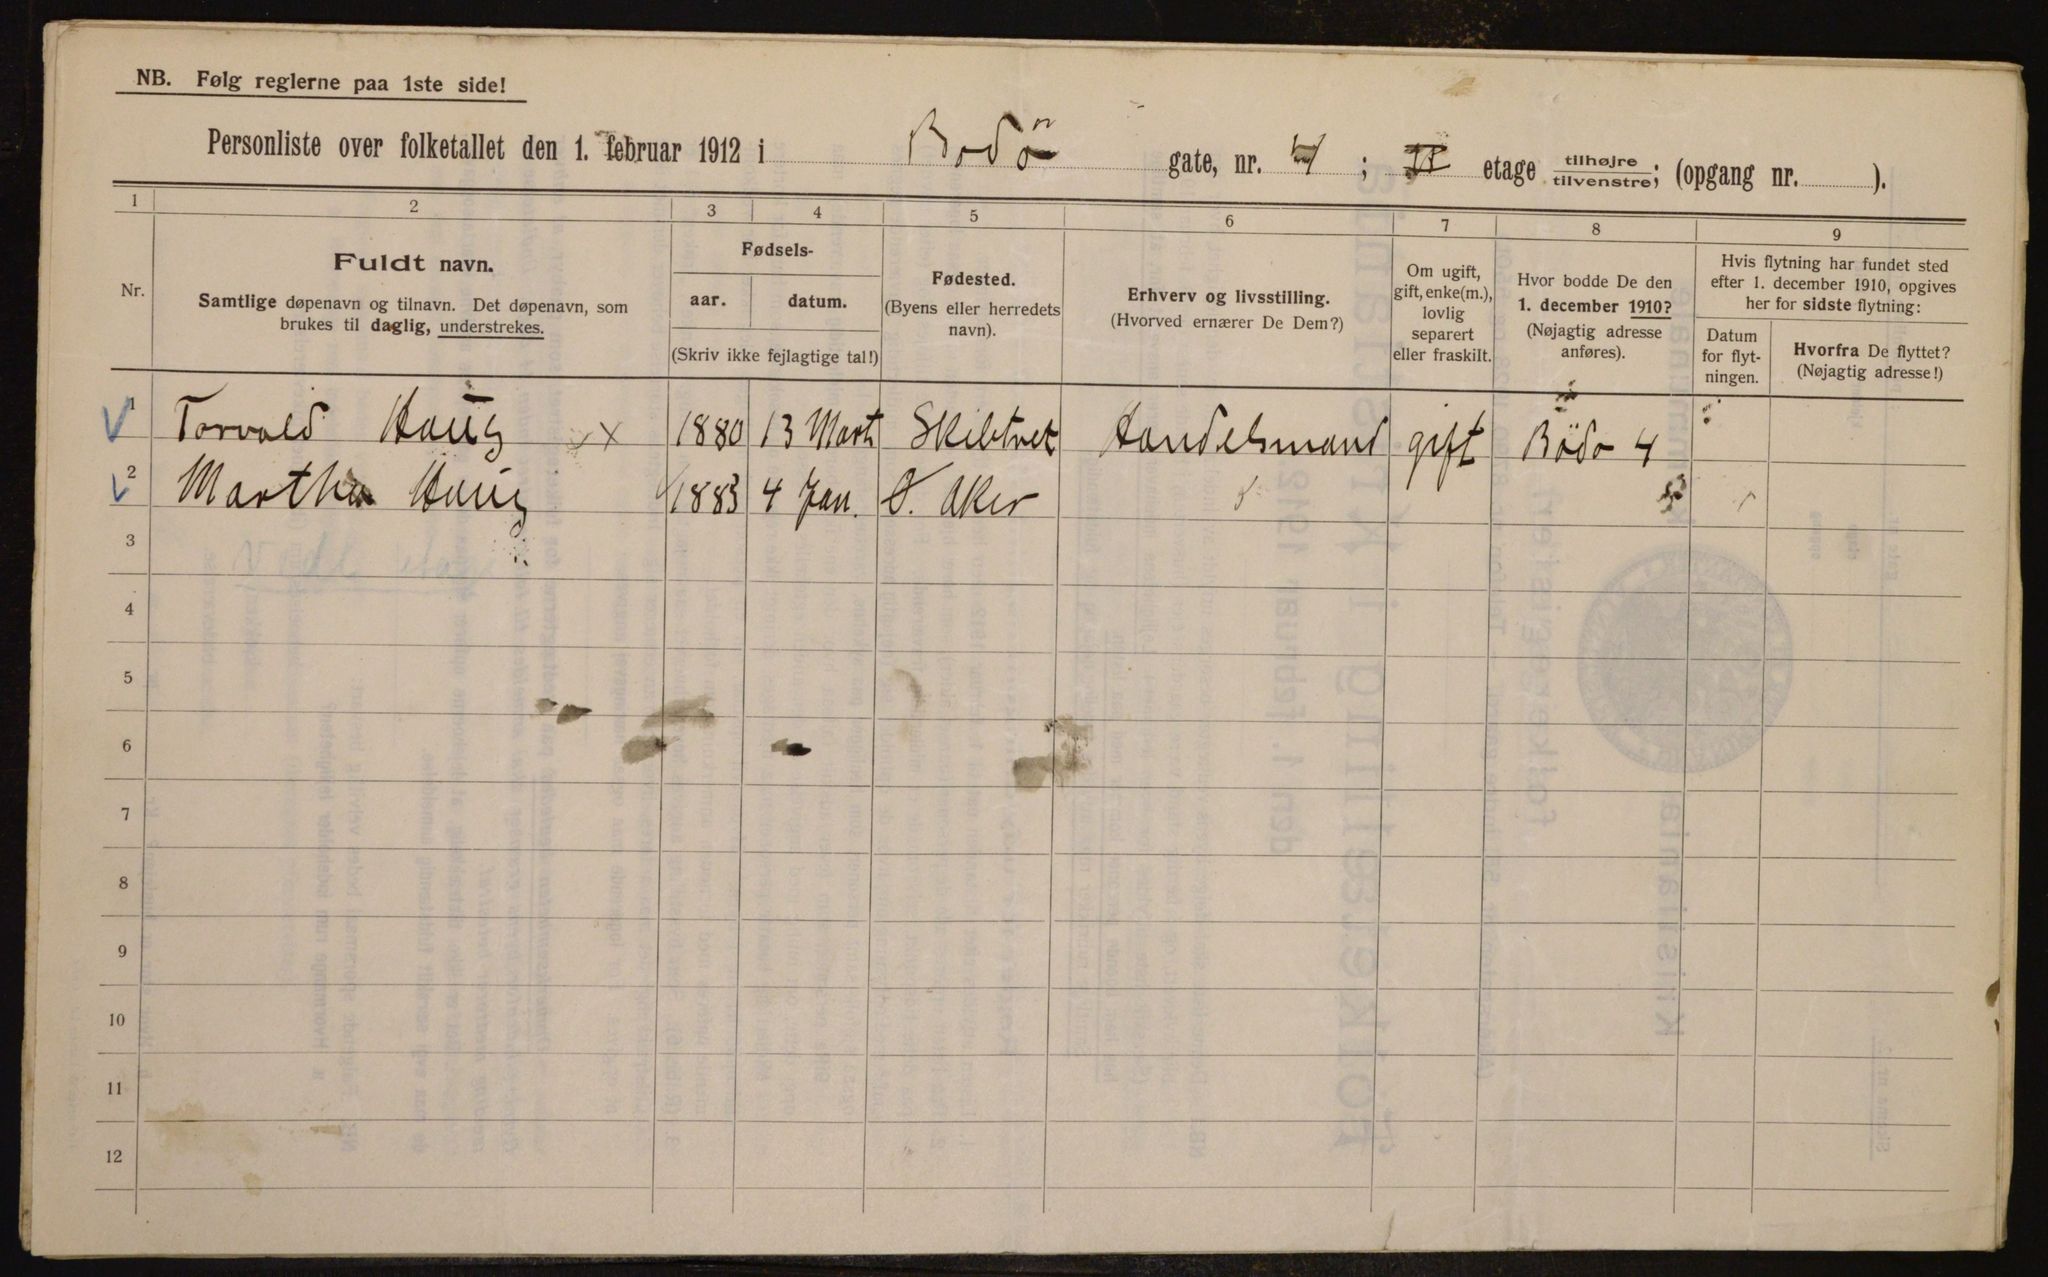 NB. Følg reglerne paa 1ste side!
Personliste over folketallet den 1. februar 1912 i Bodö gate, nr. 4; II etage tilhøjre/tilvenstre; (opgang nr. ).
1 2 3 4 5 6 7 8 9
Nr.
Fuldt navn.
Samtlige døpenavn og tilnavn. Det døpenavn, som
brukes til daglig, understrekes.
Fødsels-
aar. datum.
(Skriv ikke fejlagtige tal!)
Fødested.
(Byens eller herredets
navn).
Erhverv og livsstilling.
(Hvorved ernærer De Dem?)
Om ugift,
gift, enke(m.),
lovlig
separert
eller fraskilt.
Hvor bodde De den
1. december 1910?
(Nøjagtig adresse
anføres).
Hvis flytning har fundet sted
efter 1. december 1910, opgives
her for sidste flytning:
Datum
for flyt-
ningen.
Hvorfra De flyttet?
(Nøjagtig adresse!)
1 Torvald Haug 1880 13 Marts Skibtvet Handelsmand gift Bödo 4
2 Martha Haug 1883 4 Jan. Ø. Aker
3
4
5
6
7
8
9
10
11
12